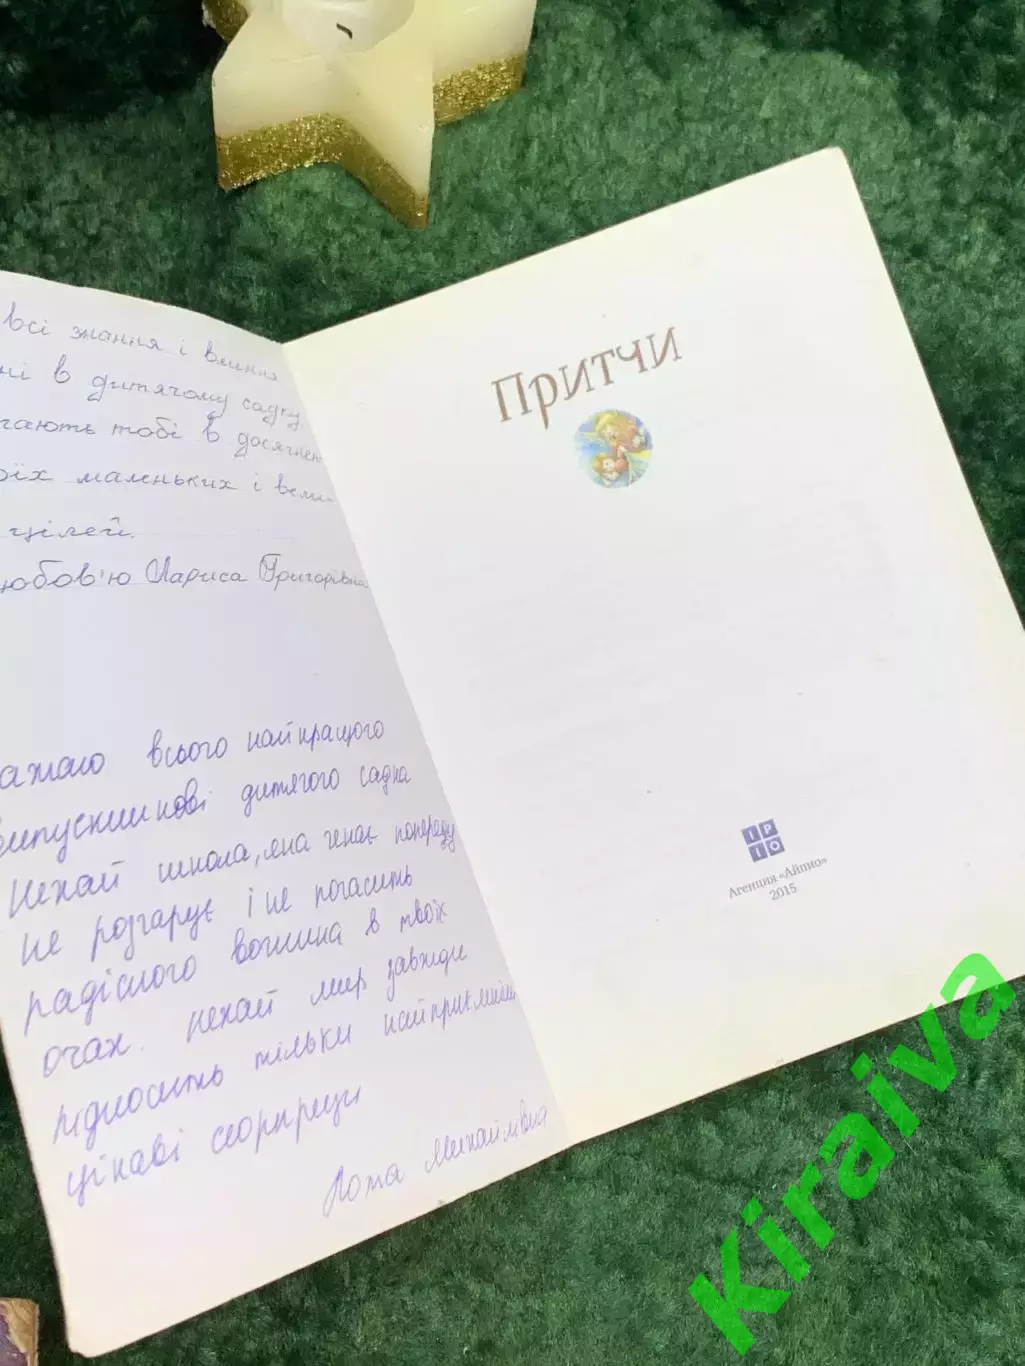 всі знання і вміння
ні в дитячому садку
гають тобі в досягнен
оїх маленьких і вели-
цілей.
юбов'ю Лариса Григорівна
ажаю всього найкращого
випускникові дитячого садка
Нехай школа, яка чекає попереду
не розчарує і не погасить
радісного вогника в твоїх
очах. Нехай мир завжди
підносить тільки найприємніші
цікаві сюрпризи
Михайлівна
Притчи
IPIO
Агенция «Айпио»
2015
Kiraiva